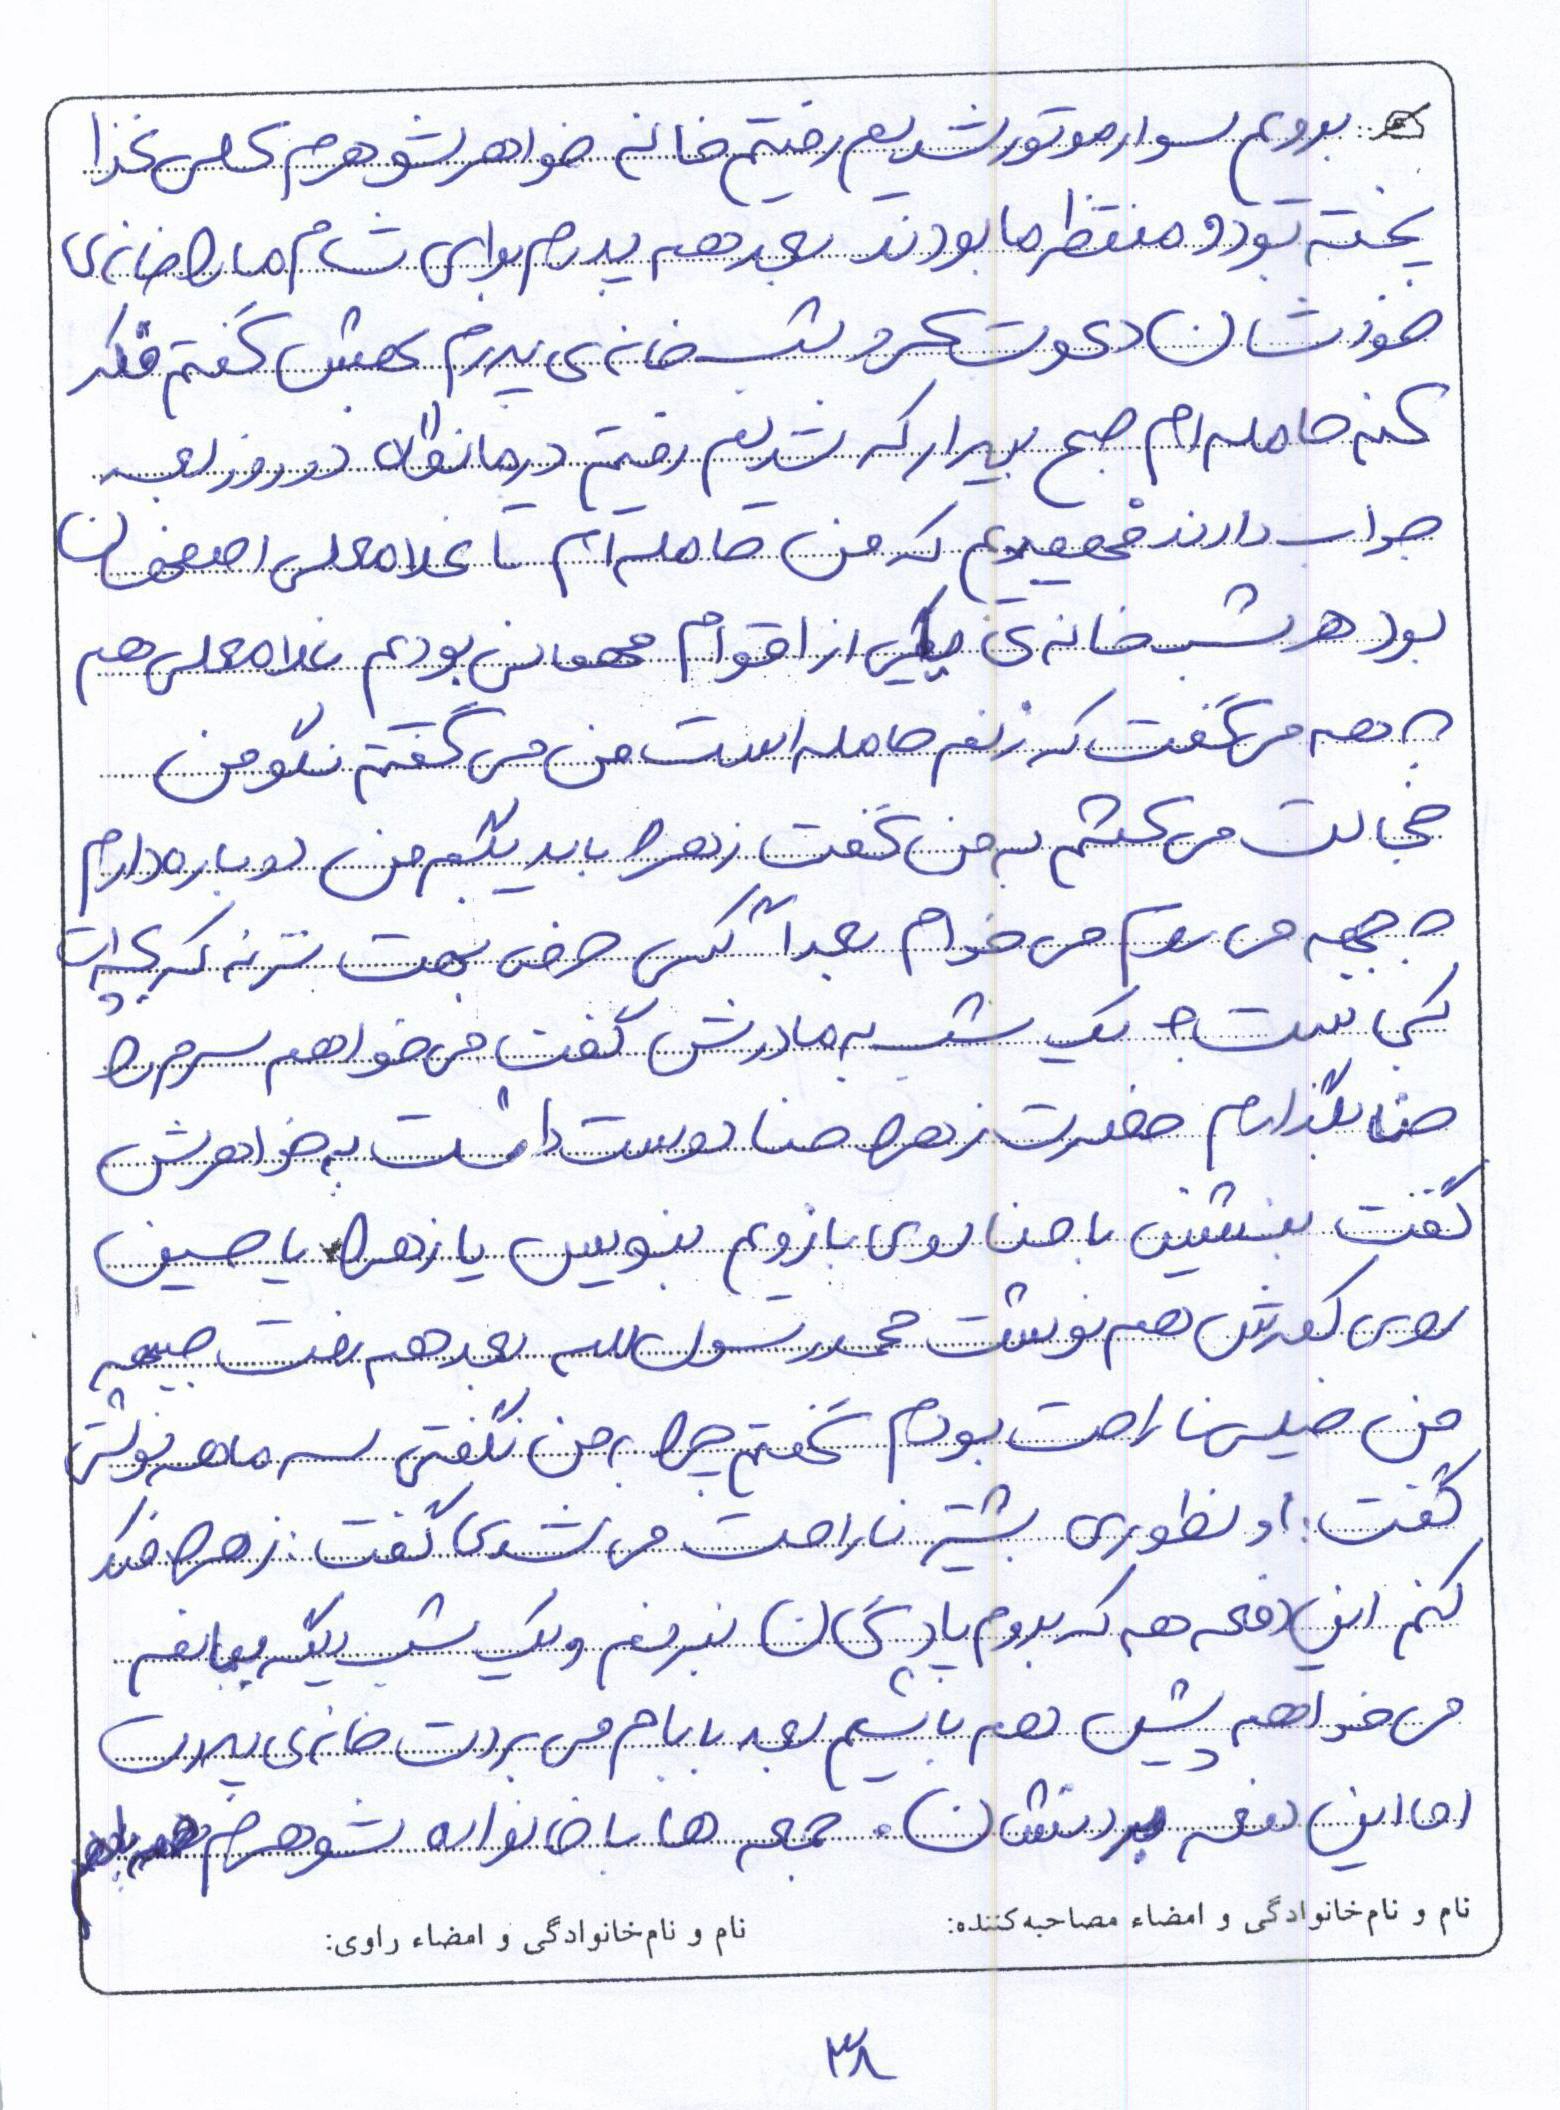 برویم سوار موتور شدیم رفتیم خانه خواهر شوهرم کلی غذا
پخته بود و منتظر ما بودند بعد هم پدرم برای شام ما را خانه‌ی
خودشان دعوت کرد شب خانه‌ی پدرم بهش گفتم فکر
کنم حامله‌ام صبح بیدار که شدیم رفتیم درمانگاه دو روز بعد
جواب دادند فهمیدیم که من حامله‌ام تا غلامعلی اصفهان
بود هر شب خانه‌ی یکی از اقوام مهمانی بودیم غلامعلی هم
به همه می‌گفت که زنم حامله است من می‌گفتم نگو من
خجالت می‌کشم به من گفت زهرا باید بگم من دوباره دارم
جبهه می‌روم می‌خوام بعداً کسی حرفی بهت نزنه که بچه‌ات
کجاست یک شب به مادرش گفت می‌خواهم سرم را
حنا بگذارم حضرت زهرا حنا دوست داشت به خواهرش
گفت بنشین با حنا روی بازویم بنویس یا زهرا یا حسین
روی کمرش هم نوشت محمد رسول الله بعد هم رفت جبهه
من خیلی ناراحت بودم گفتم چرا به من نگفتی سه ماهه نوشتی
گفت: اونطوری بیشتر ناراحت می‌شدی گفت: زهرا فکر
کنم این دفعه هم که بروم پادگان نبرنم و یک شب دیگه بمانم
می‌خواهم پیش هم باشیم بعد بابام می‌بردت خانه‌ی پدرت
اما این دفعه بردنشان. جمعه‌ها با خانواده شوهرم
نام و نام‌خانوادگی و امضاء مصاحبه‌کننده:
نام و نام‌خانوادگی و امضاء راوی:
۳۸